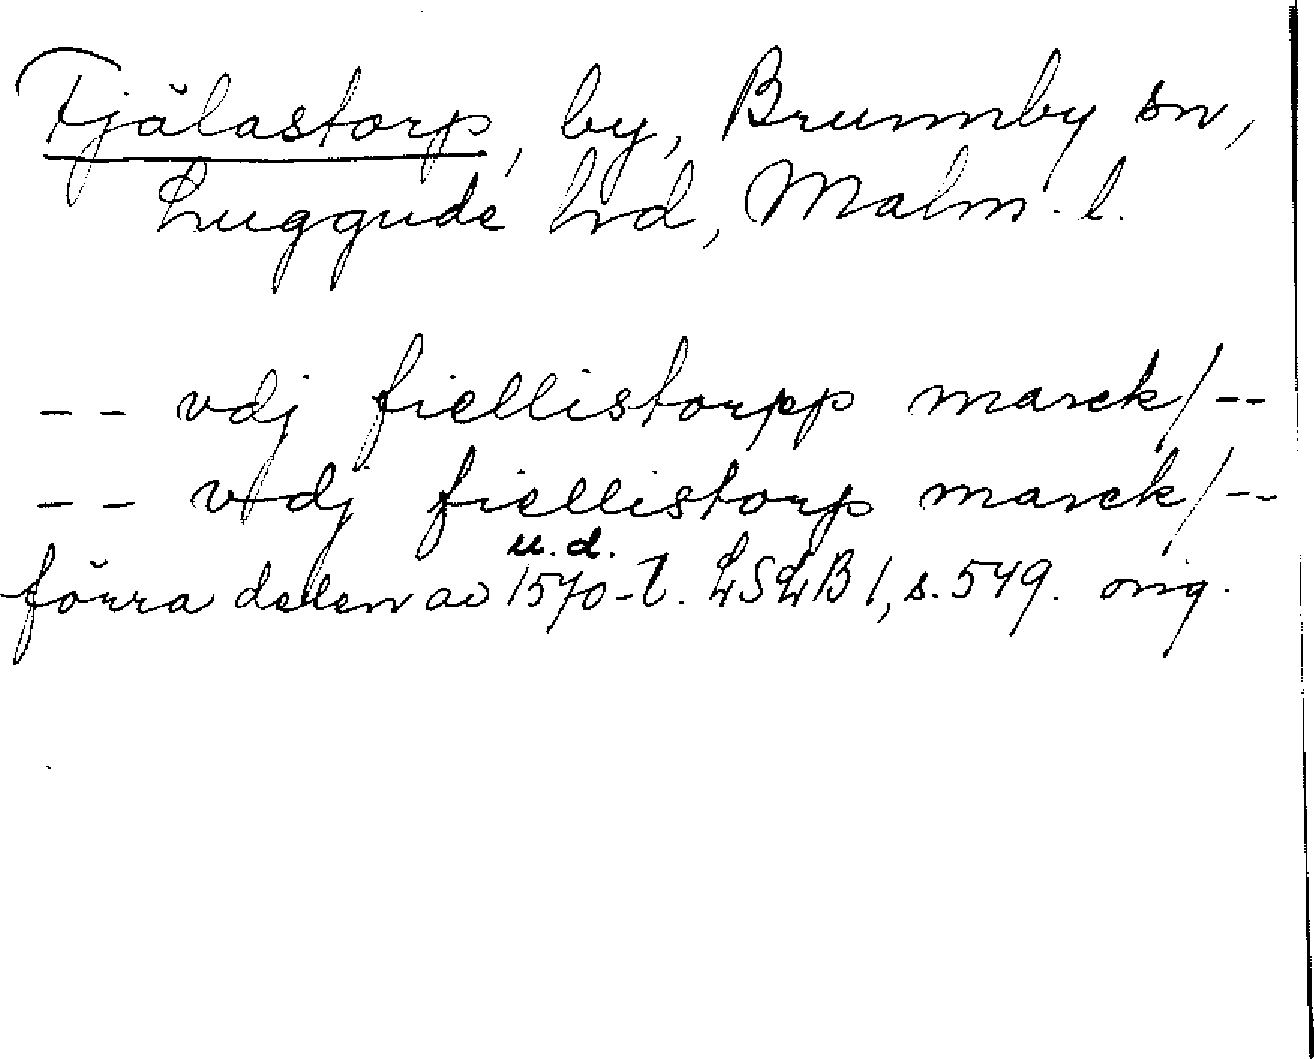 Fjälastorp, by, Brunnby sn,
Luggude hd, Malm. l.
-- vdj fiellistorpp marck/--
-- vdj fiellistorp marck/--
u. d.
förra delen av 1570-t. LSLB 1, s. 549. orig.